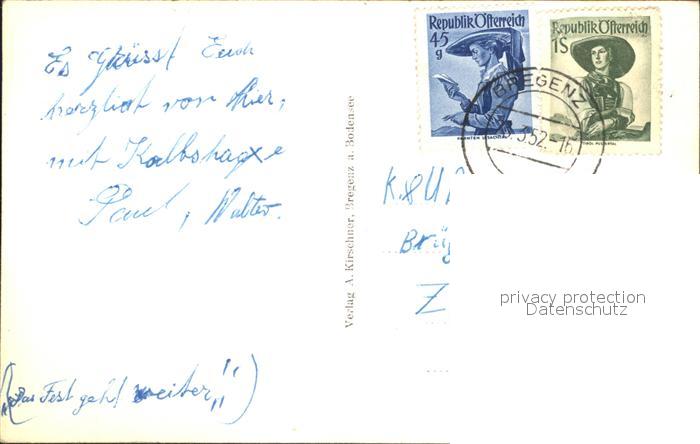 Es grüsst Euch
herzlich von hier,
mit Kalbshaxe
Paul, Walter.
("Das Fest geht weiter")
Verlag A. Kirschner, Bregenz a. Bodensee
Republik Österreich
45
g
KÄRNTEN LESACHTAL
Republik Österreich
1S
TIROL PUSTERTAL
BREGENZ
3.52.-16
K&U
Brü
Z
privacy protection
Datenschutz